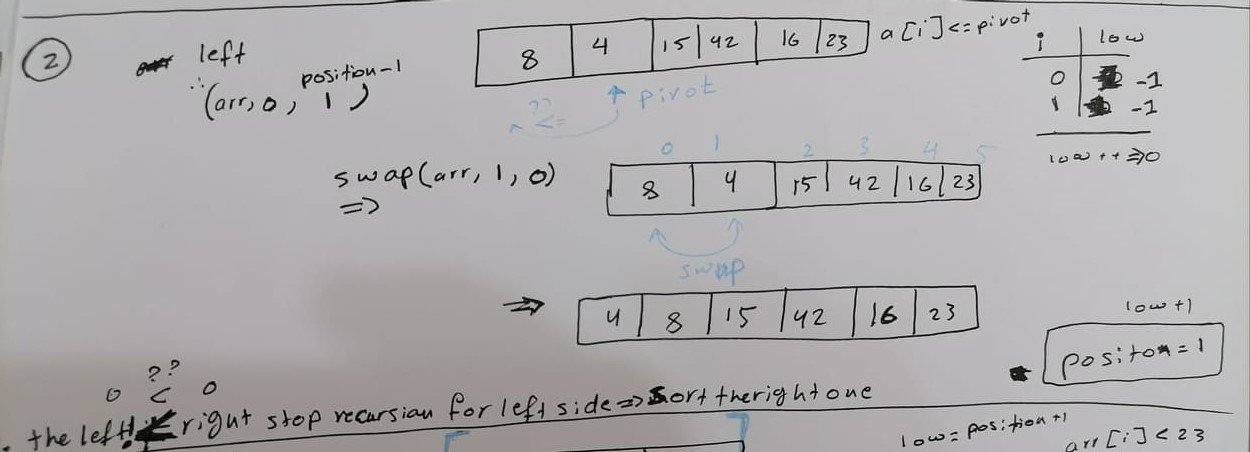 2
left
position-1
(arr, 0, 1)
8 4 15 42 16 23
a[i]<=pivot
i low
0 -1
1 -1
low++=>0
??
<=
pivot
swap(arr, 1, 0)
=>
0 1 2 3 4 5
8 4 15 42 16 23
swap
=> 4 8 15 42 16 23
low+1
positon=1
??
0 < 0
. the left!< right stop recursian for left side=>sort the right one
low=position+1
arr[i]<23